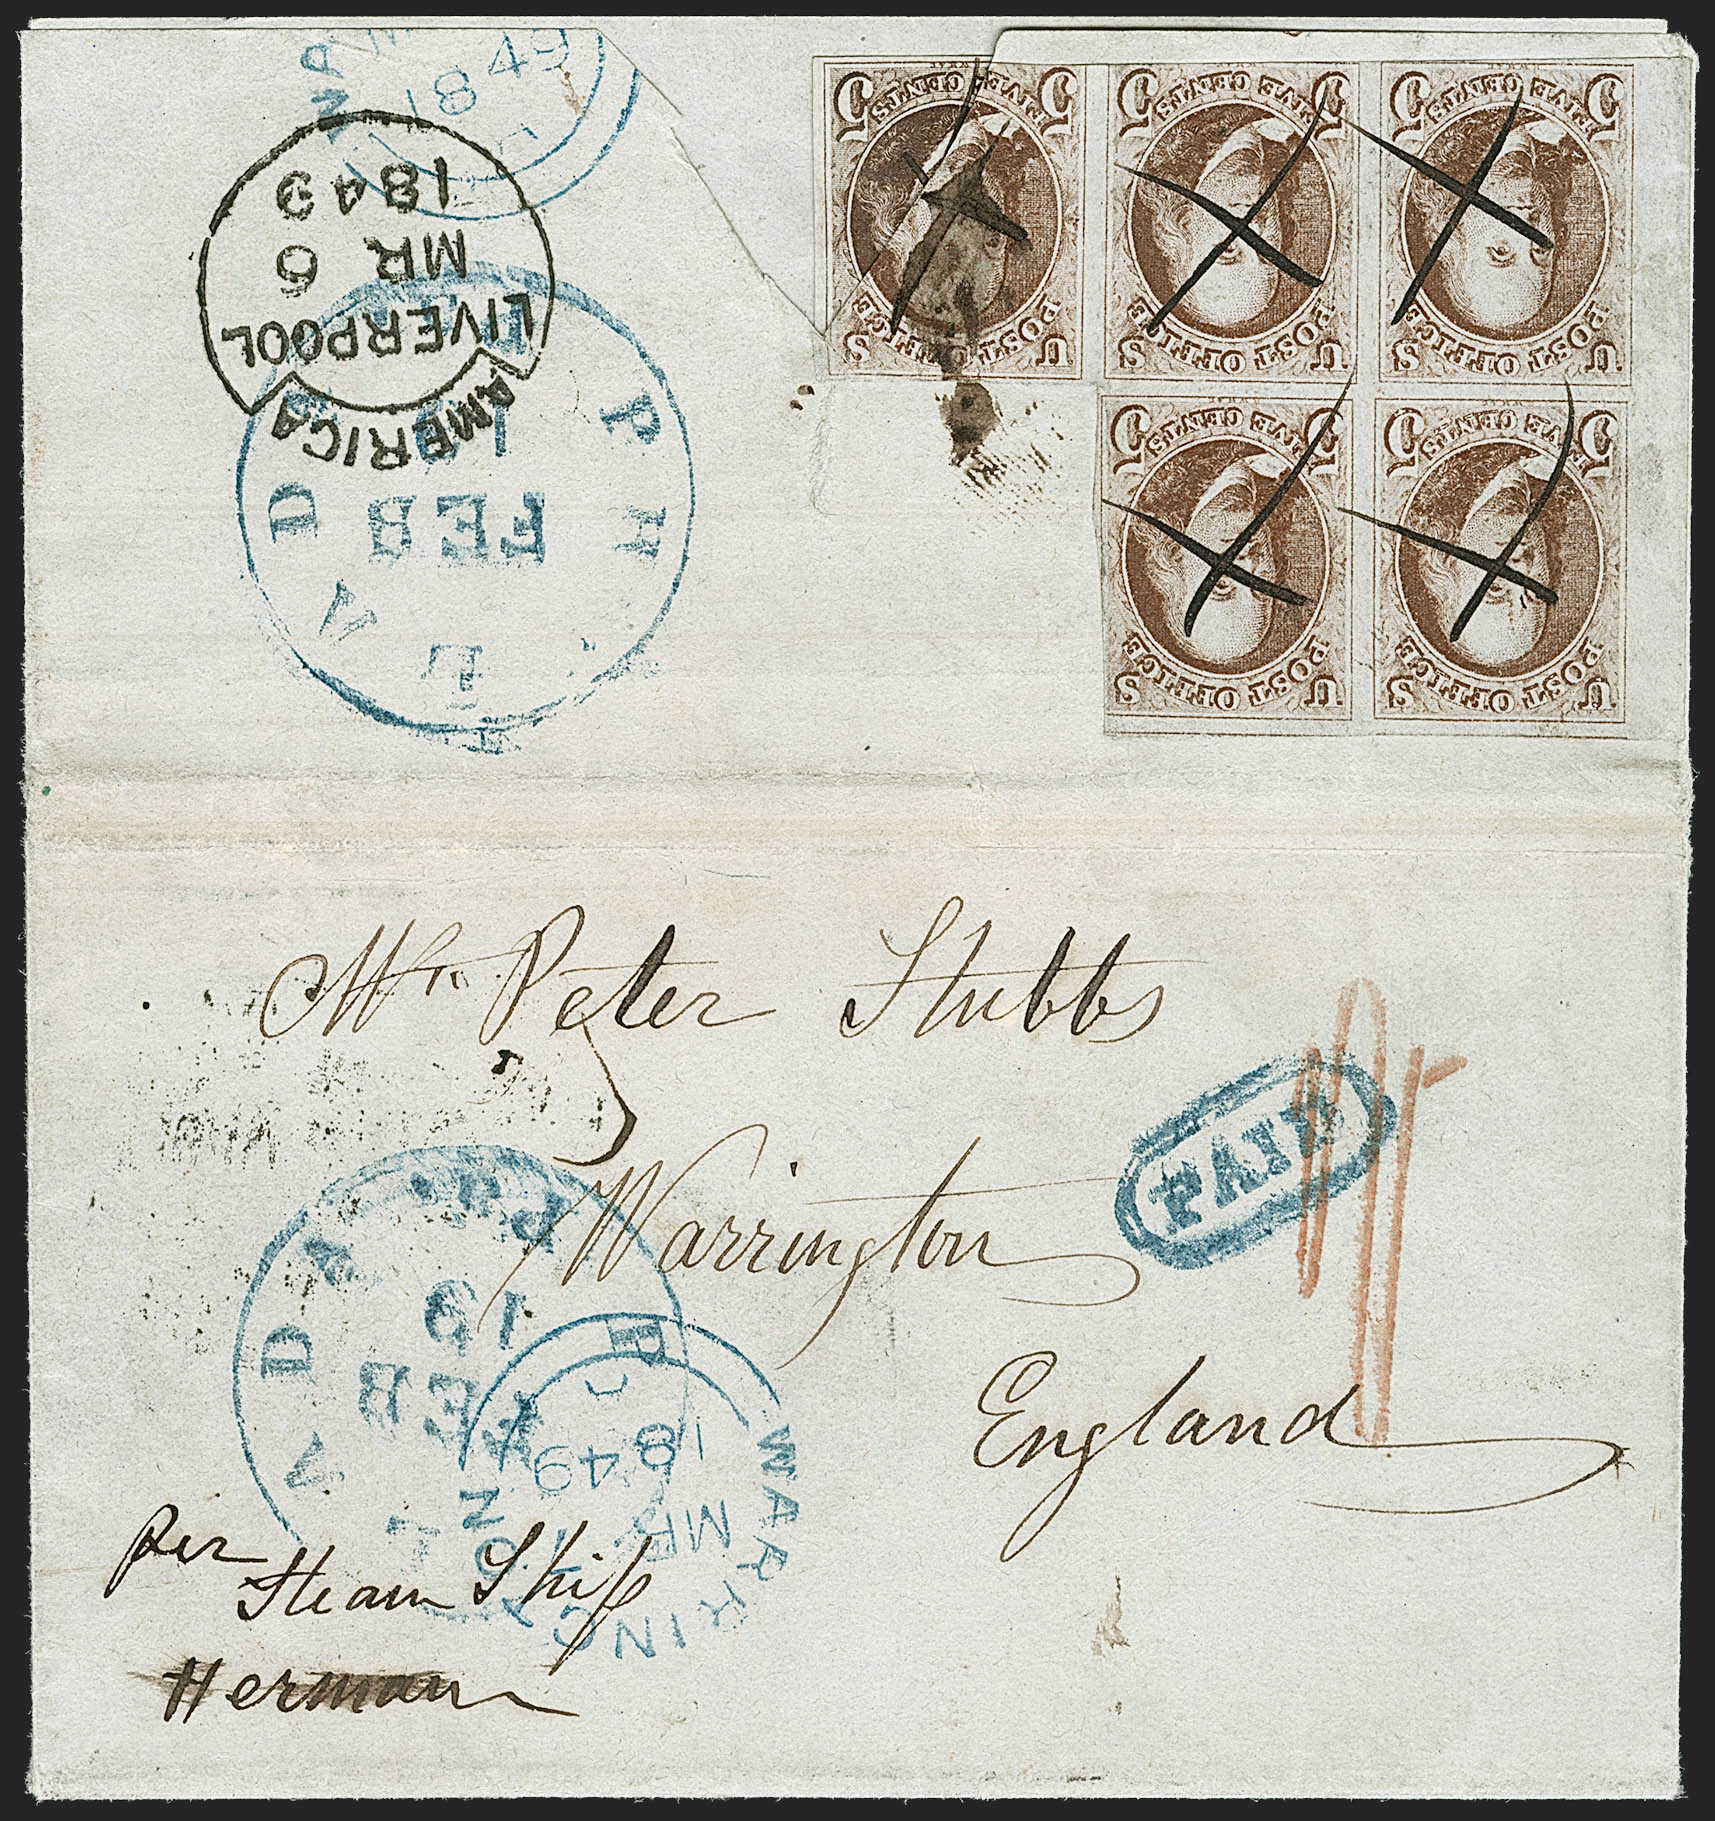 1849
AMERICA
LIVERPOOL
MR 6
1849
FEB
5 FIVE CENTS 5
U POST OFFICE S
5 FIVE CENTS 5
U POST OFFICE S
5 FIVE CENTS 5
U POST OFFICE S
5 FIVE CENTS 5
U POST OFFICE S
5 FIVE CENTS 5
U POST OFFICE S
Mr. Peter Stubbs
Warrington
England
PAID
19
FEB
WARRINGTON
MR
1849
per
Steam Ship
Herman